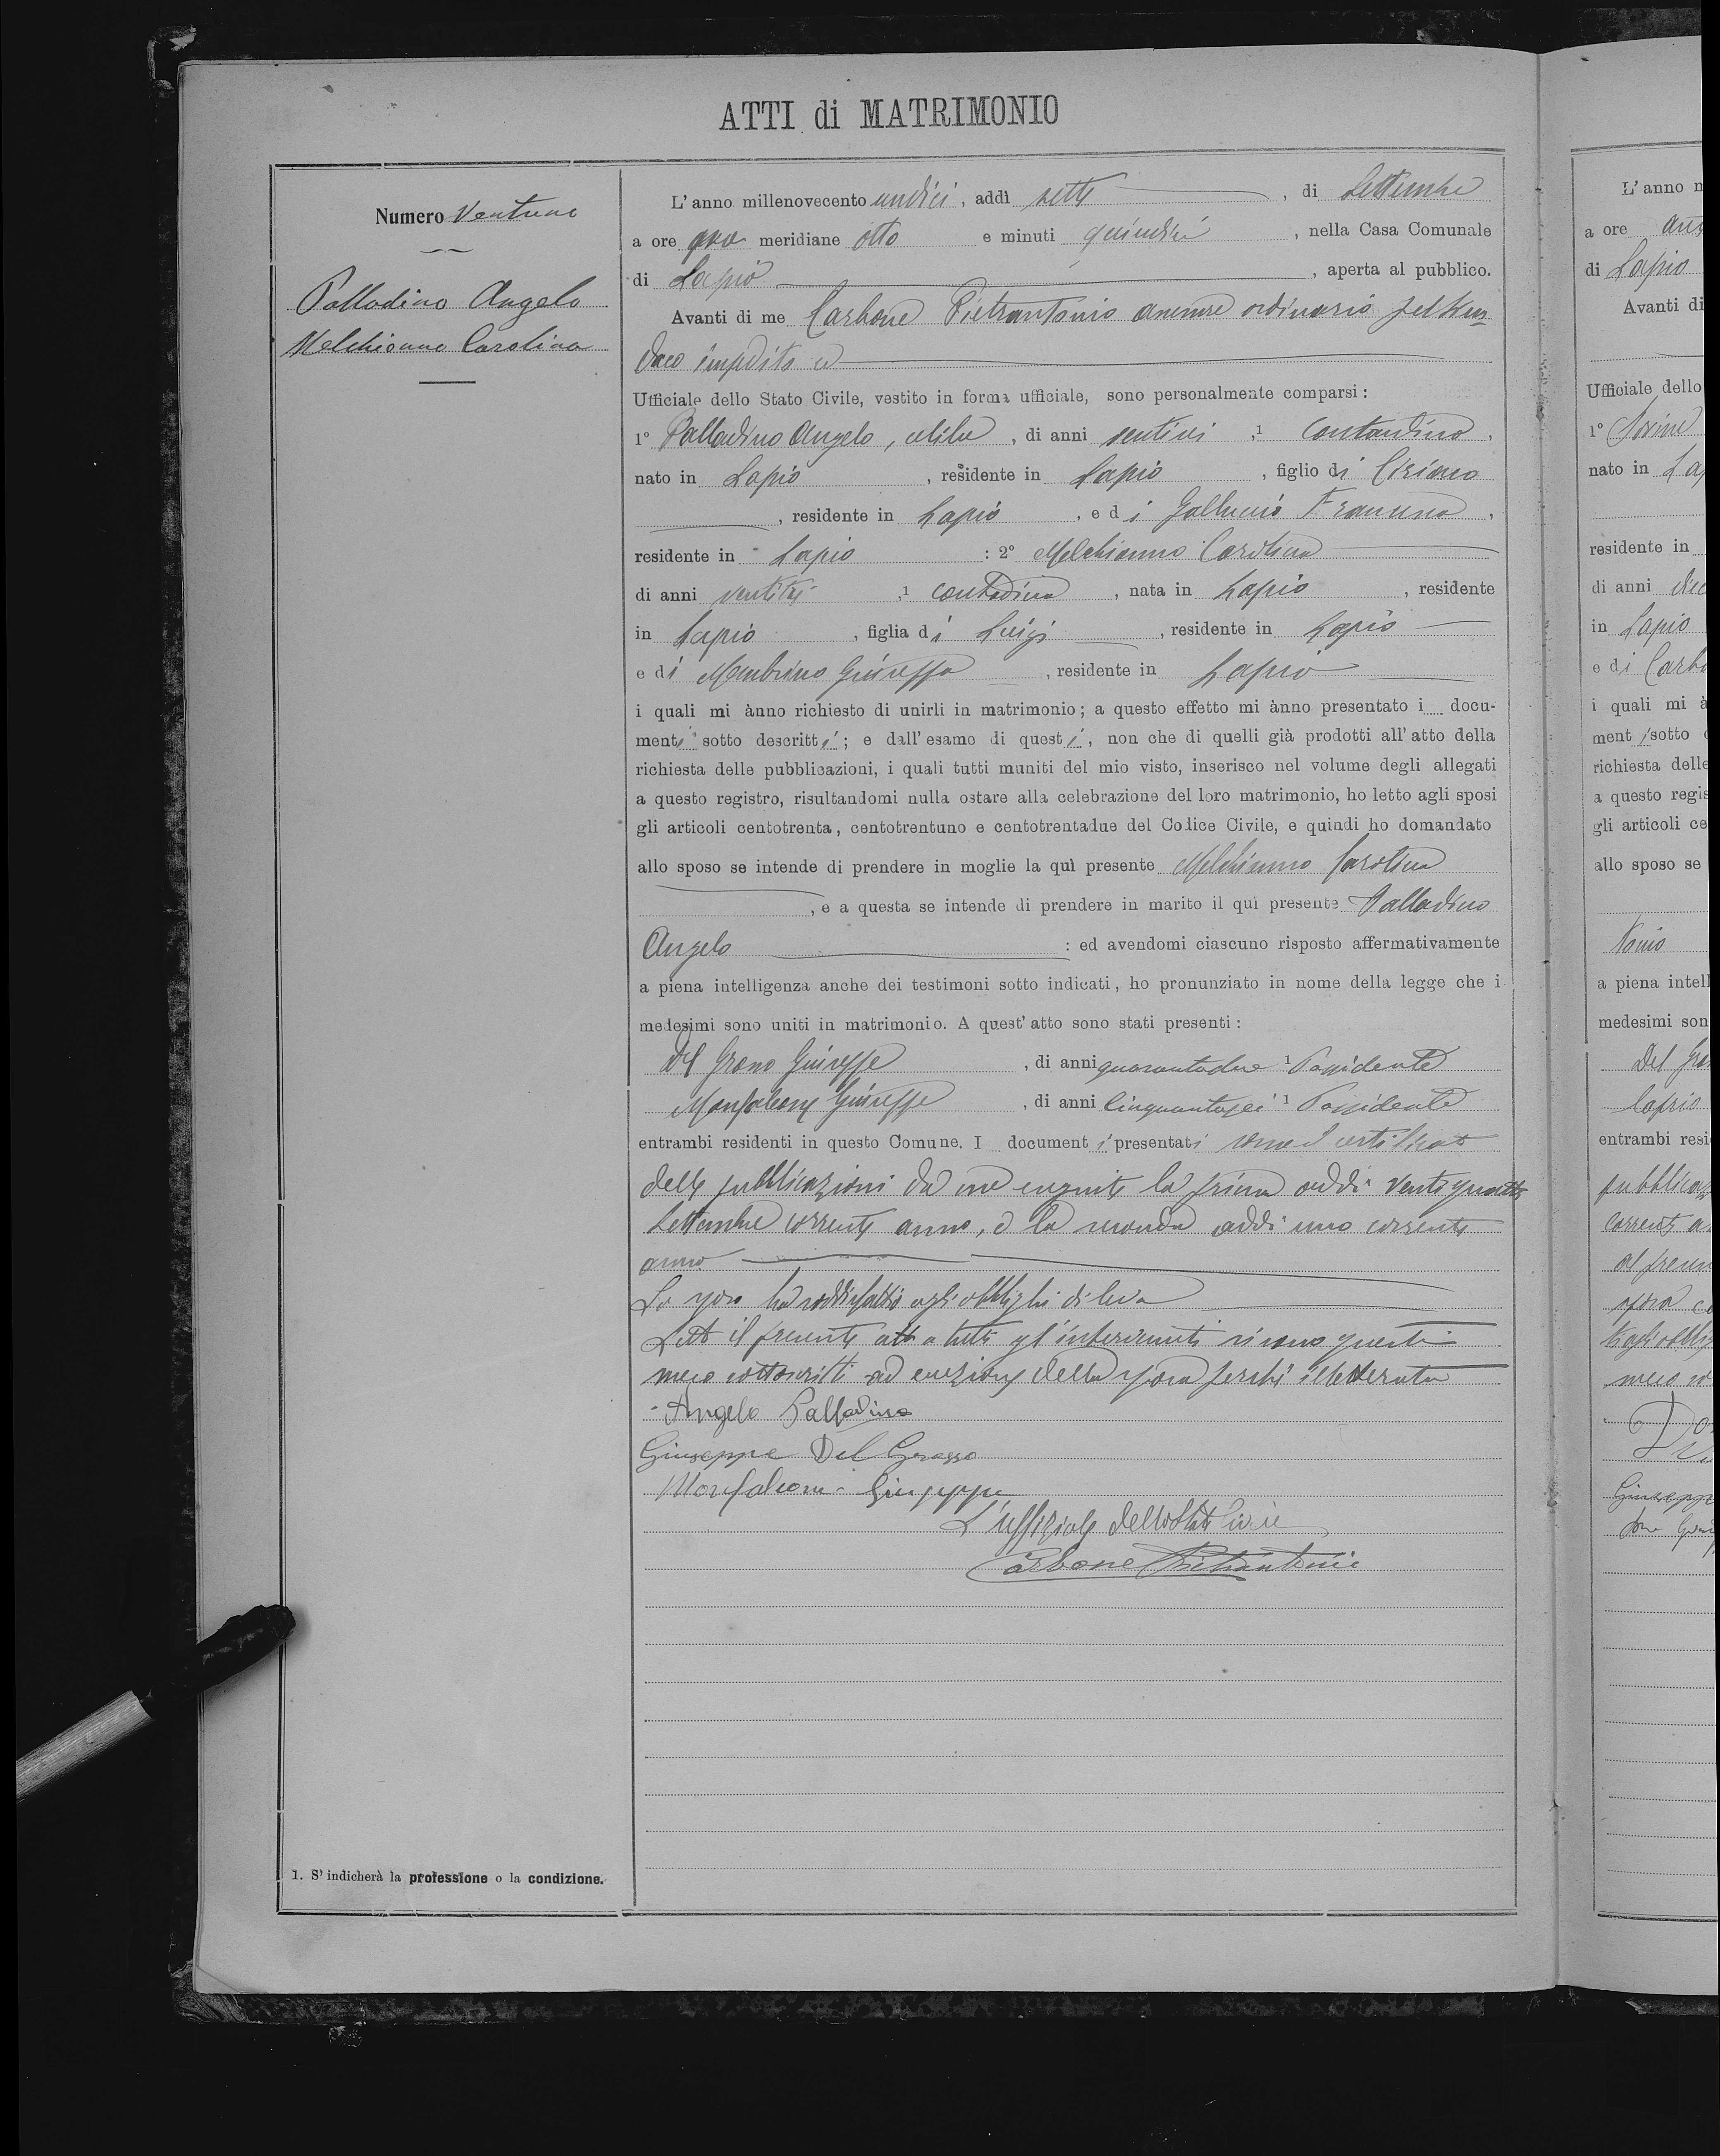 ATTI di MATRIMONIO
Numero Ventuno
Palladino Angelo
Melchionno Carolina
1. S' indicherà la professione o la condizione.
L' anno millenovecento undici, addì sette, di Settembre
a ore pom meridiane otto e minuti quindici, nella Casa Comunale
di Lapio, aperta al pubblico.
Avanti di me Carbone Pietrantonio assessore ordinario pel Sin
daco impedito
Ufficiale dello Stato Civile, vestito in forma ufficiale, sono personalmente comparsi:
1° Palladino Angelo, celibe, di anni ventisei,1 Contandino,
nato in Lapio, residente in Lapio, figlio di Ciriaco
, residente in Lapio, e di Galluccio Francesca,
residente in Lapio: 2° Melchionno Carolina
di anni ventitre,1 contadina, nata in Lapio, residente
in Lapio, figlia di Luigi, residente in Lapio
e di Giuseppa, residente in Lapio
i quali mi ànno richiesto di unirli in matrimonio; a questo effetto mi ànno presentato i docu-
menti sotto descritti; e dall' esame di questi, non che di quelli già prodotti all' atto della
richiesta delle pubblicazioni, i quali tutti muniti del mio visto, inserisco nel volume degli allegati
a questo registro, risultandomi nulla ostare alla celebrazione del loro matrimonio, ho letto agli sposi
gli articoli centotrenta, centotrentuno e centotrentadue del Codice Civile, e quindi ho domandato
allo sposo se intende di prendere in moglie la quì presente Melchionno Carolina
, e a questa se intende di prendere in marito il quì presente Palladino
Angelo: ed avendomi ciascuno risposto affermativamente
a piena intelligenza anche dei testimoni sotto indicati, ho pronunziato in nome della legge che i
medesimi sono uniti in matrimonio. A quest' atto sono stati presenti:
Del Grosso Giuseppe, di anni quarantadue 1 Possidente
Monfalcone Giuseppe, di anni cinquantasei 1 Possidente
entrambi residenti in questo Comune. I documenti presentati sono il certificato
delle pubblicazioni da me eseguite la prima addì ventiquattro
Settembre corrente anno, e la seconda addì uno corrente
anno
Lo sposo ha soddisfatto agli obblighi di leva
Letto il presente atto a tutti gl'intervenuti si sono questi
meco sottoscritti ad eccezione della sposa perchè illetterata
Angelo Palladino
Giuseppe Del Grosso
Monfalcone Giuseppe
L'uffiziale dello Stato Civile
Carbone Pietrantonio
L' anno
a ore
di Lapio
Avanti di
Ufficiale dello
1°
nato in
residente in
di anni
in Lapio
e di
i quali mi
sotto
richiesta delle
a questo
gli articoli
allo sposo se
a piena
medesimi
Del
entrambi